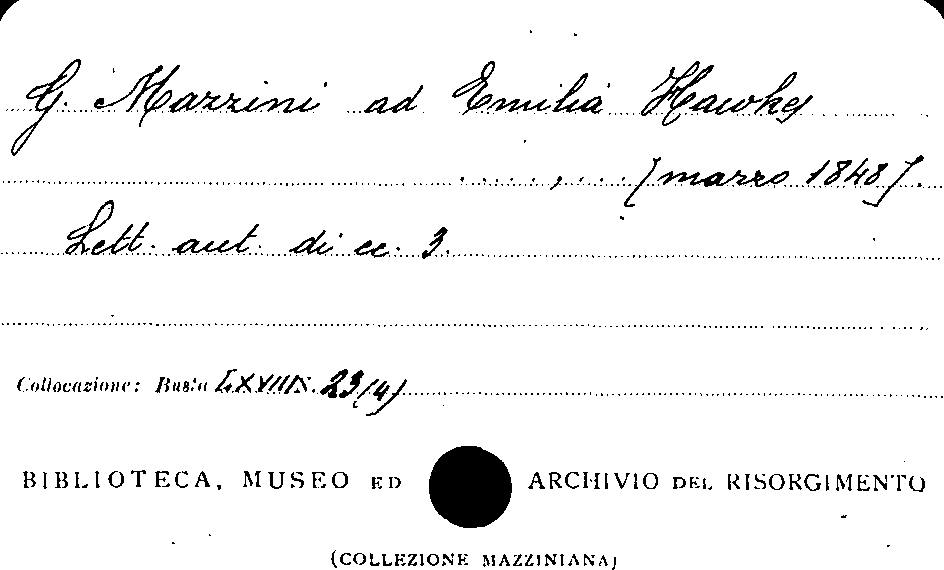 G. Mazzini ad Emilia Hawkes
....., ... [marzo 1848].
Lett. aut. di cc. 3.
Collocazione: Busta LXVIII N. 23(4)
BIBLIOTECA, MUSEO ED ARCHIVIO DEL RISORGIMENTO
(COLLEZIONE MAZZINIANA)